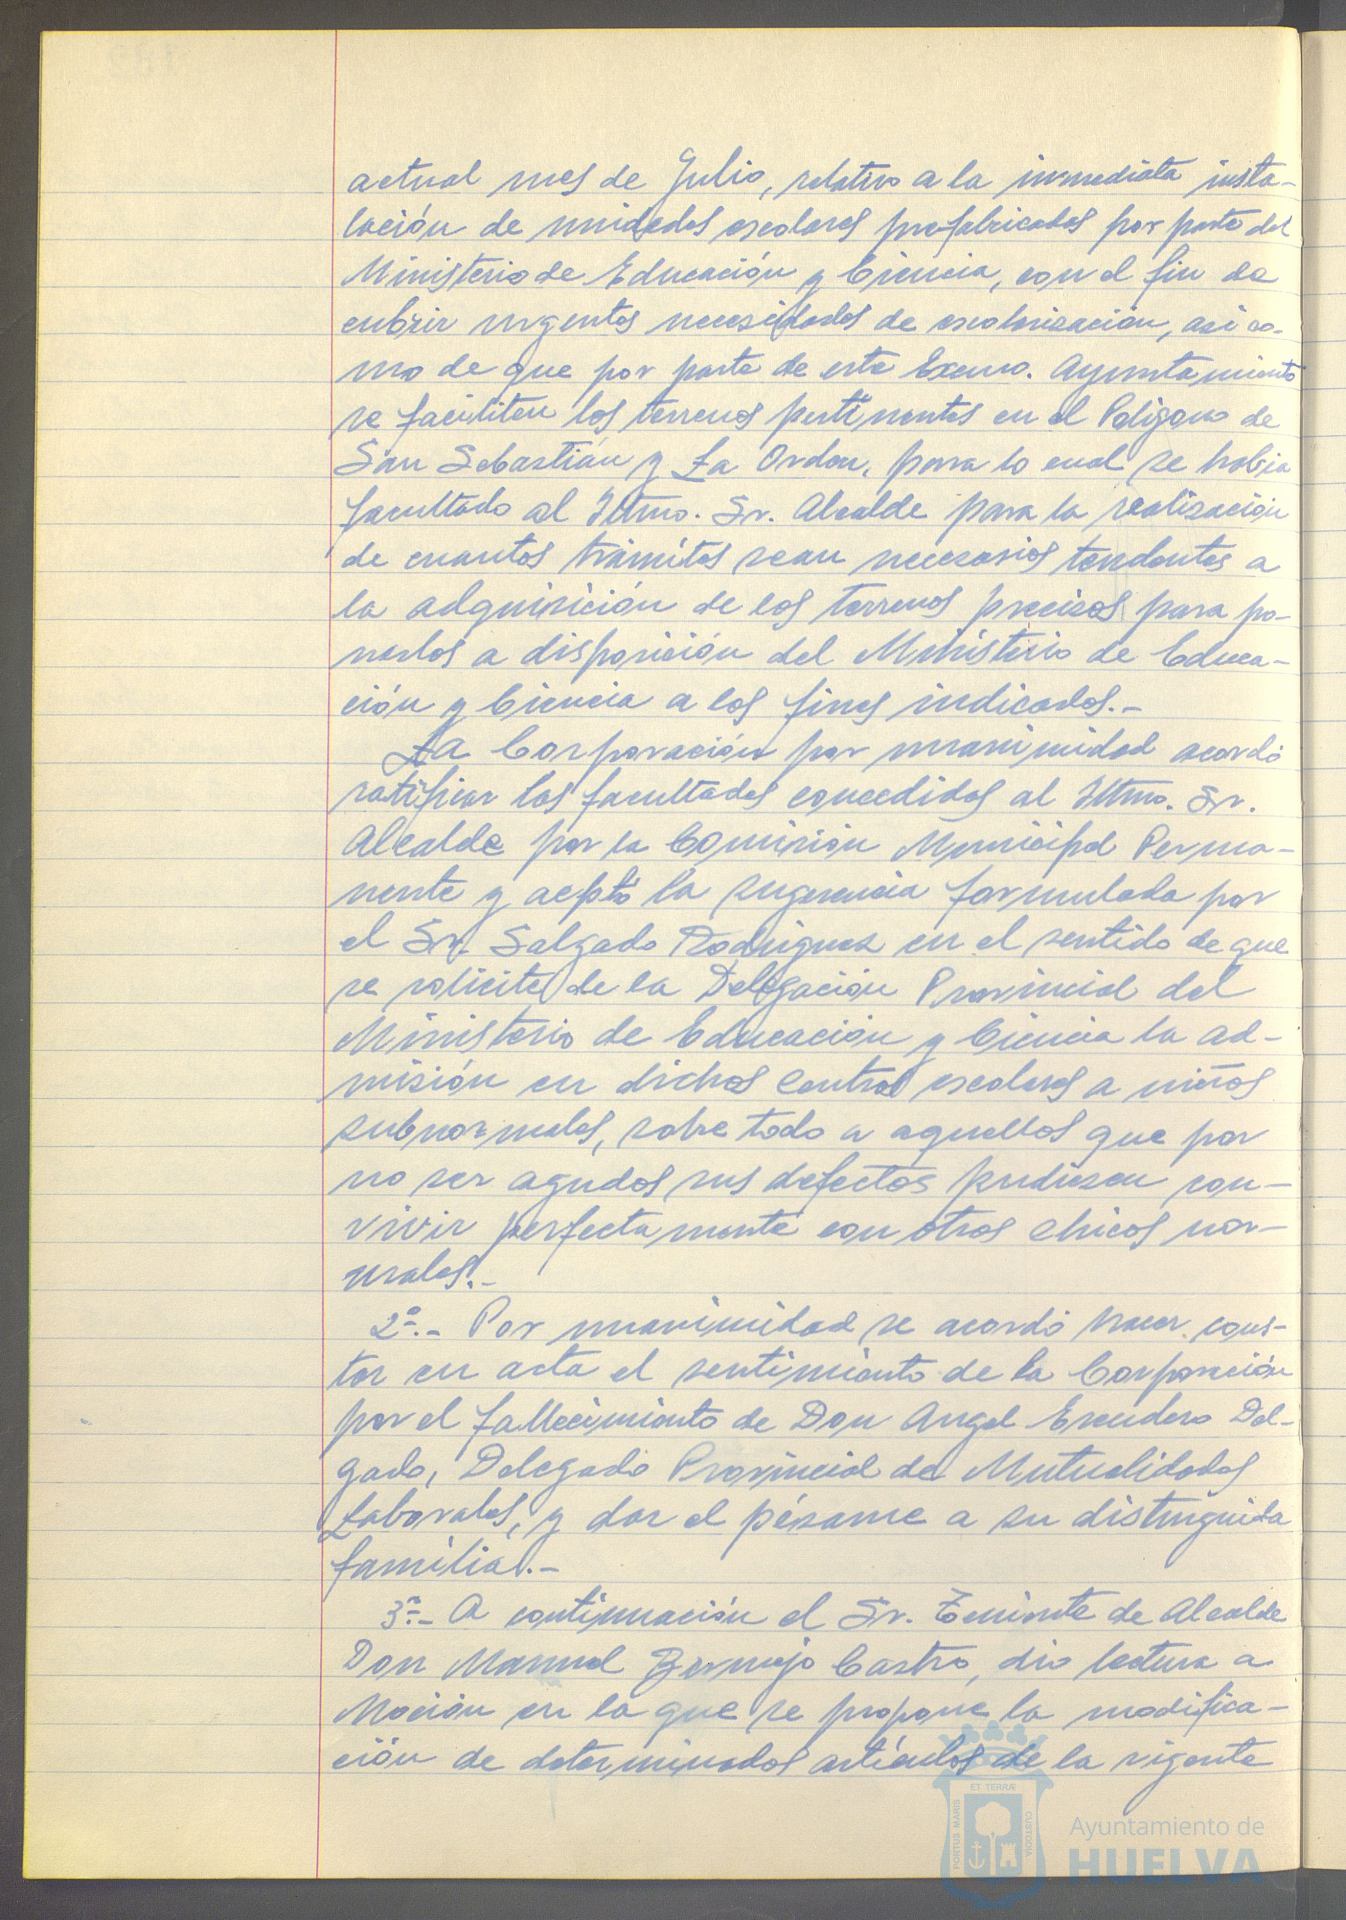 actual mes de Julio, relativo a la inmediata insta-
lación de unidades escolares prefabricadas por parte del
Ministerio de Educación y Ciencia, con el fin de
cubrir urgentes necesidades de escolarización, así co-
mo de que por parte de este Excmo. Ayuntamiento
se faciliten los terrenos pertinentes en el Polígono de
San Sebastián y La Orden, para lo cual se había
facultado al Iltmo. Sr. Alcalde para la realización
de cuantos trámites sean necesarios tendentes a
la adquisición de los terrenos precisos para po-
nerlos a disposición del Ministerio de Educa-
ción y Ciencia a los fines indicados.-
La Corporación por unanimidad acordó
ratificar las facultades concedidas al Iltmo. Sr.
Alcalde por la Comisión Municipal Perma-
nente y aceptó la sugerencia formulada por
el Sr. Salgado Rodríguez en el sentido de que
se solicite de la Delegación Provincial del
Ministerio de Educación y Ciencia la ad-
misión en dichos Centros escolares a niños
subnormales, sobre todo a aquellos que por
no ser agudos sus defectos pudiesen con-
vivir perfectamente con otros chicos nor-
males.-
2º.- Por unanimidad se acordó hacer cons-
tar en acta el sentimiento de la Corporación
por el fallecimiento de Don Angel Escudero Del-
gado, Delegado Provincial de Mutualidades
Laborales, y dar el pésame a su distinguida
familia.-
3º.- A continuación el Sr. Teniente de Alcalde
Don Manuel Bermejo Castro, dio lectura a
Moción en la que se propone la modifica-
ción de determinados artículos de la vigente
PORTUS MARIS
ET TERRÆ
CUSTODIA
Ayuntamiento de
HUELVA